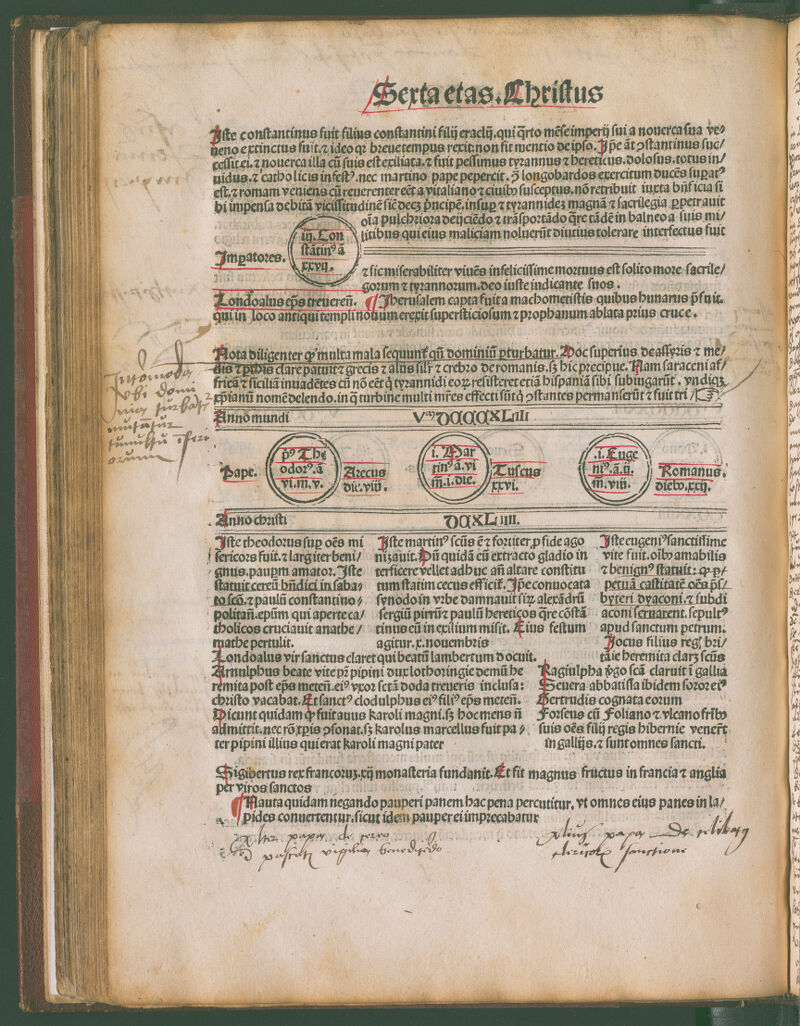 Sexta etas. Christus
Iste constantinus fuit filius constantini filij eraclij. qui q̄rto mēse imperij sui a nouerca sua ve⸗
neno extinctus fuit. ⁊ ideo qꝛ breue tempus rexit non fit mentio de ipso. Ipe āt ꝯstantinus suc/
cessit ei. ⁊ nouerca illa cū suis est exiliata. ⁊ fuit pessimus tyrannus ⁊ hereticus. dolosus. totus in/
uidus. ⁊ catholicis infestꝰ. nec martino pape pepercit. longobardos exercitum ducēs suꝑatꝰ
est. ⁊ romam veniens cū reuerenter eēt a vitaliano ⁊ ciuibꝰ susceptus. nō retribuit iuxta bn̄ficia si
bi impensa debitā vicissitudinē sic̄ decꝫ pn̄cipē. insuꝑ ⁊ tyrannideꝫ magnā ⁊ sacrilegia ꝑpetrauit
oīa pulchriora deijciēdo ⁊ trāsportādo q̄re tādē in balneo a suis mi/
litibus qui eius maliciam noluerūt diutius tolerare interfectus fuit
iij. Con
stātinꝰ ā
xxvij.
Imꝑatores.
⁊ sic miserabiliter viuēs infelicissime mortuus est solito more sacrile/
gorum ⁊ tyrannorum. deo iuste iudicante suos.
Londoalus ep̄s treueren̄. ¶ Iherusalem capta fuit a machometistis quibus hunarus p̄fuit.
qui in loco antiqui templi nouum erexit supersticiosum ⁊ prophanum ablata prius cruce.
Nota diligenter qꝙ multa mala sequunt᷑ qn̄ dominiū ꝑturbatur. Hoc superius de assyrijs ⁊ me/
dis ⁊ ꝑthis clare patuit ⁊ grecis ⁊ alijs sil̄r ⁊ crebro de romanis. sꝫ hic precipue. Nam saraceni af/
fricā ⁊ siciliā inuadētes cū nō eēt qͥ tyrannidi eoꝝ resisteret etiā hispaniā sibi subiugarūt. vndiqꝫ
xp̄ianū nomē delendo. in qͣ turbine multi mr̄es effecti sūt qͥ ꝯstantes permanserūt ⁊ fuit tri/
ubi domi
mutatur
Anno mundi Vᵐ DCCCXLIII
Pape.
pꝰ The
odorꝰ. ā
vi. m. v.
Arecus
die. viij.
i. Mar
tinꝰ ā. vi
m̄. i. die.
Tuscus
xxvi.
.i. Euge
niꝰ. ā. ij.
m̄. viij.
Romanus.
diebꝰ. xxij.
Anno christi DCXLIIII.
Iste theodorus suꝑ oēs mi
sericors fuit. ⁊ largiter beni/
gnus. pauꝑm amator. Iste
statuit cereū bn̄dici in saba⸗
to scō. ⁊ paulū constantino⸗
politan̄. ep̄um qui aperte ca/
tholicos cruciauit anathe/
mathe pertulit.
Iste martinꝰ scūs ē ⁊ fortiter ꝓ fide ago
nizauit. Hūc quidā cū extracto gladio in
terficere vellet ad huc an̄ altare constitu
tum statim cecus efficit᷑. Ipe conuocata
synodo in vrbe damnauit siꝫ alexādrū
sergiū pirrū ⁊ paulū hereticos q̄re cōstā
tinus eū in exilium misit. Eius festum
agitur. x. nouembris
Iste eugeniꝰ sanctissime
vite fuit. oībꝰ amabilis
⁊ benignꝰ statuit: qꝙ ꝑ/
petuā castitatē oēs p̄s/
byteri dyaconi. ⁊ subdi
aconi seruarent. sepultꝰ
apud sanctum petrum.
Iocus filius reḡ bri/
tāie heremita clarꝫ scūs
Londoalus vir sanctus claret qui beatū lambertum docuit.
Arnulphus beate vite pr̄ pipini dux lothoringie demū he
remita post ep̄s meten̄. eiꝰ vxor sctā doda treueris inclusa:
christo vacabat. Et sanctꝰ clodulphus eiꝰ filiꝰ ep̄s meten̄.
Dicunt quidam qꝙ fuit auus karoli magni. sꝫ hoc mens n̄
admittit. nec rō tꝑis ꝯsonat. sꝫ karolus marcellus fuit pa⸗
ter pipini illius qui erat karoli magni pater
Ragiulpha v̄go scā claruit ī gallia
Seuera abbatissa ibidem soror eiꝰ
Gertrudis cognata eorum
Forseus cū Foliano ⁊ vlcano fr̄ibꝰ
suis oēs filij regis hibernie venerūt
in gallijs. ⁊ sunt omnes sancti.
Sigibertus rex francoꝝ. xij monasteria fundauit. Et fit magnus fructus in francia ⁊ anglia
per viros sanctos
¶ Nauta quidam negando pauperi panem hac pena percutitur. vt omnes eius panes in la/
pides conuertentur. sicut idem pauper ei imprecabatur
papa de cereo
benedicendo
Alius papa De celibatu